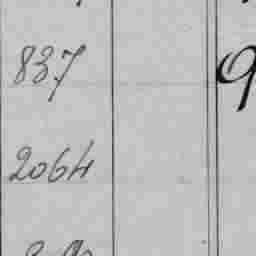 837
2064